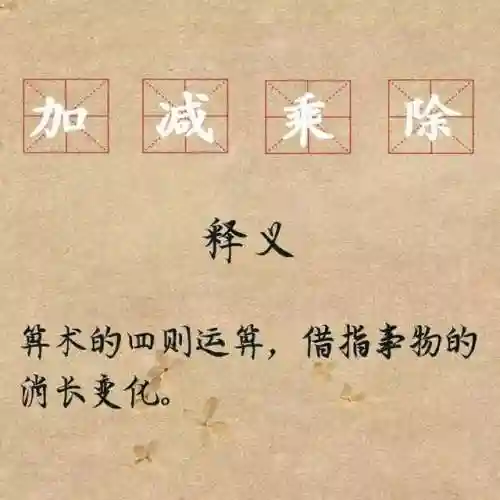 加减乘除
释义
算术的四则运算，借指事物的
消长变化。